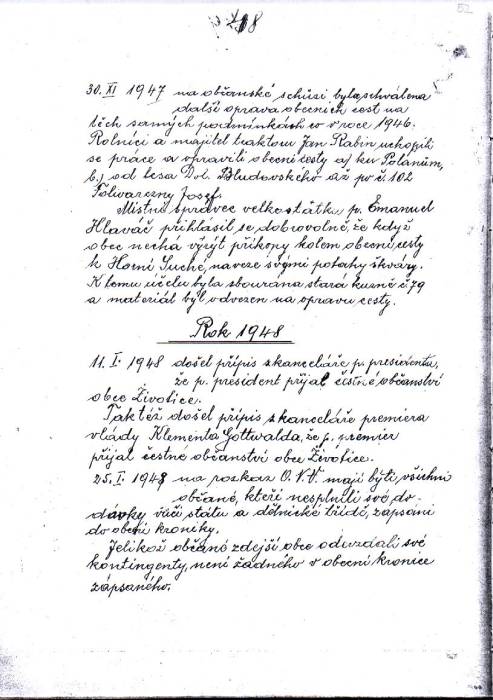 52
48
30. XI 1947 na občanské schůzi byla schválena
další oprava obecních cest na
těch samých podmínkách co v roce 1946.
Rolníci a majitel traktoru Jan Rabin uchopili
se práce a opravili obecní cesty a) ku Polanům,
b) od lesa Dol. Bludovského až po č. 102
Folwarczny Josef.
Místní správce velkostatku p. Emanuel
Hlaváč přihlásil se dobrovolně, že když
obec nechá vyrýt příkopy kolem obecní cesty
k Horní Suché, naveze svými potahy škváry.
K tomu účelu byla sbourána stará kuzně č. 79
a materiál byl odvezen na opravu cesty.
Rok 1948
11. I. 1948 došel přípis z kanceláře p. presidenta,
že p. president přijal čestné občanství
obce Životice.
Taktéž došel přípis z kanceláře premiera
vlády Klementa Gottwalda, že p. premier
přijal čestné občanství obce Životice.
25. I. 1948 na rozkaz O.N.V. mají býti všichni
občané, kteří nesplnili své do-
dávky vůči státu a dělnické třídě, zapsáni
do obecní kroniky.
Jelikož občané zdejší obce odevzdali své
kontingenty, není žádného v obecní kronice
zápsaného.